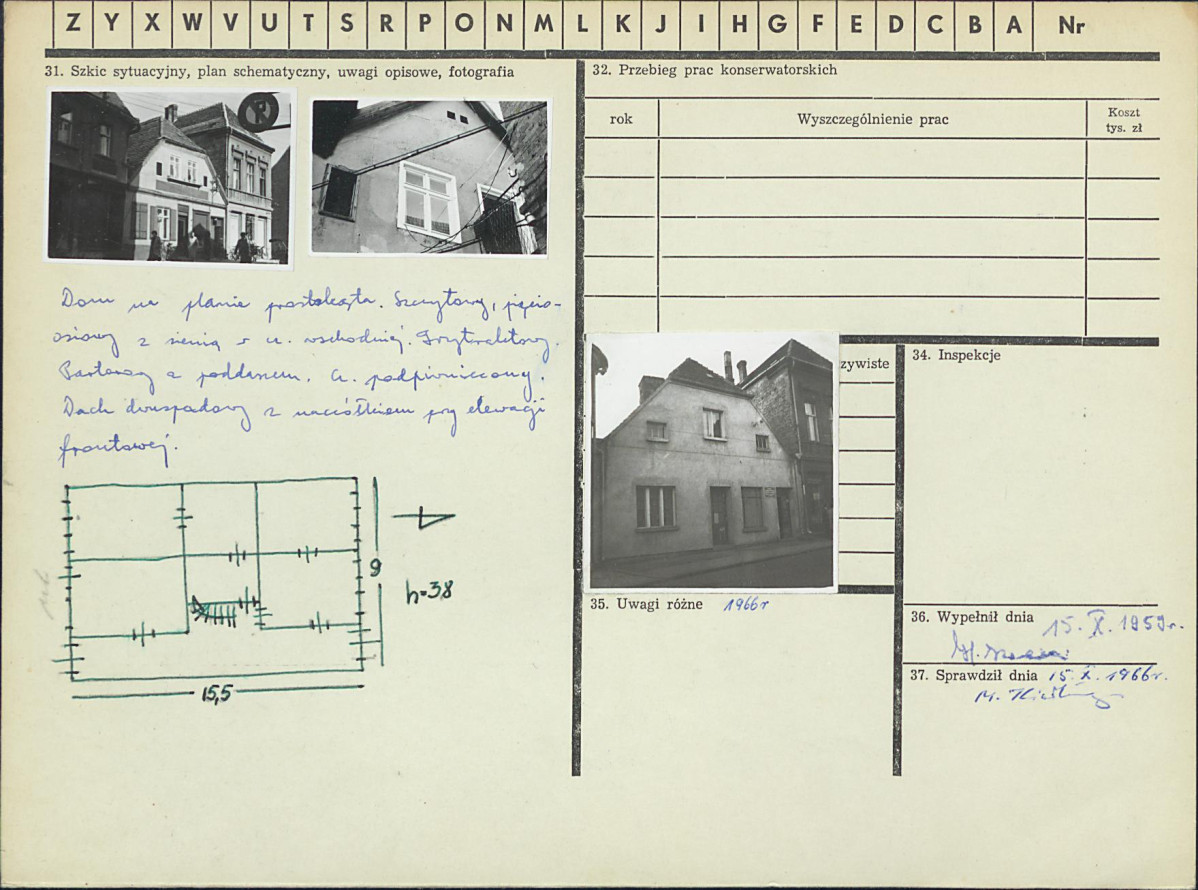 Z Y X W V U T S R P O N M L K J I H G F E D C B A Nr
31. Szkic sytuacyjny, plan schematyczny, uwagi opisowe, fotografia
Dom na planie prostokąta. Szczytowy, pięcio-
osiowy z sienią w cz. wschodniej. Trzytraktowy.
Parterowy z poddaszem. Cz. podpiwniczony.
Dach dwuspadowy z naczółkiem przy elewacji
frontowej.
9
h=3,8
15,5
32. Przebieg prac konserwatorskich
rok
Wyszczególnienie prac
Koszt
tys. zł
zywiste
34. Inspekcje
35. Uwagi różne 1966 r
36. Wypełnił dnia 15. X. 1959 r.
37. Sprawdził dnia 15. X. 1966 r.